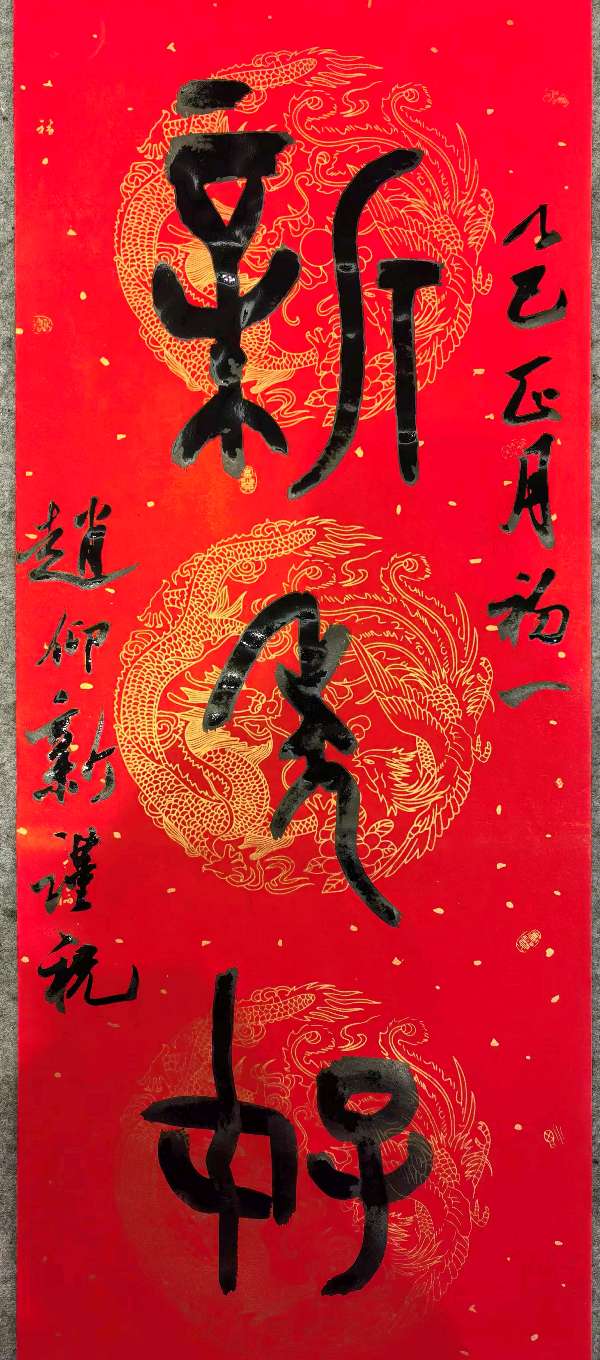 乙巳正月初一
新年好
趙仰新謹祝